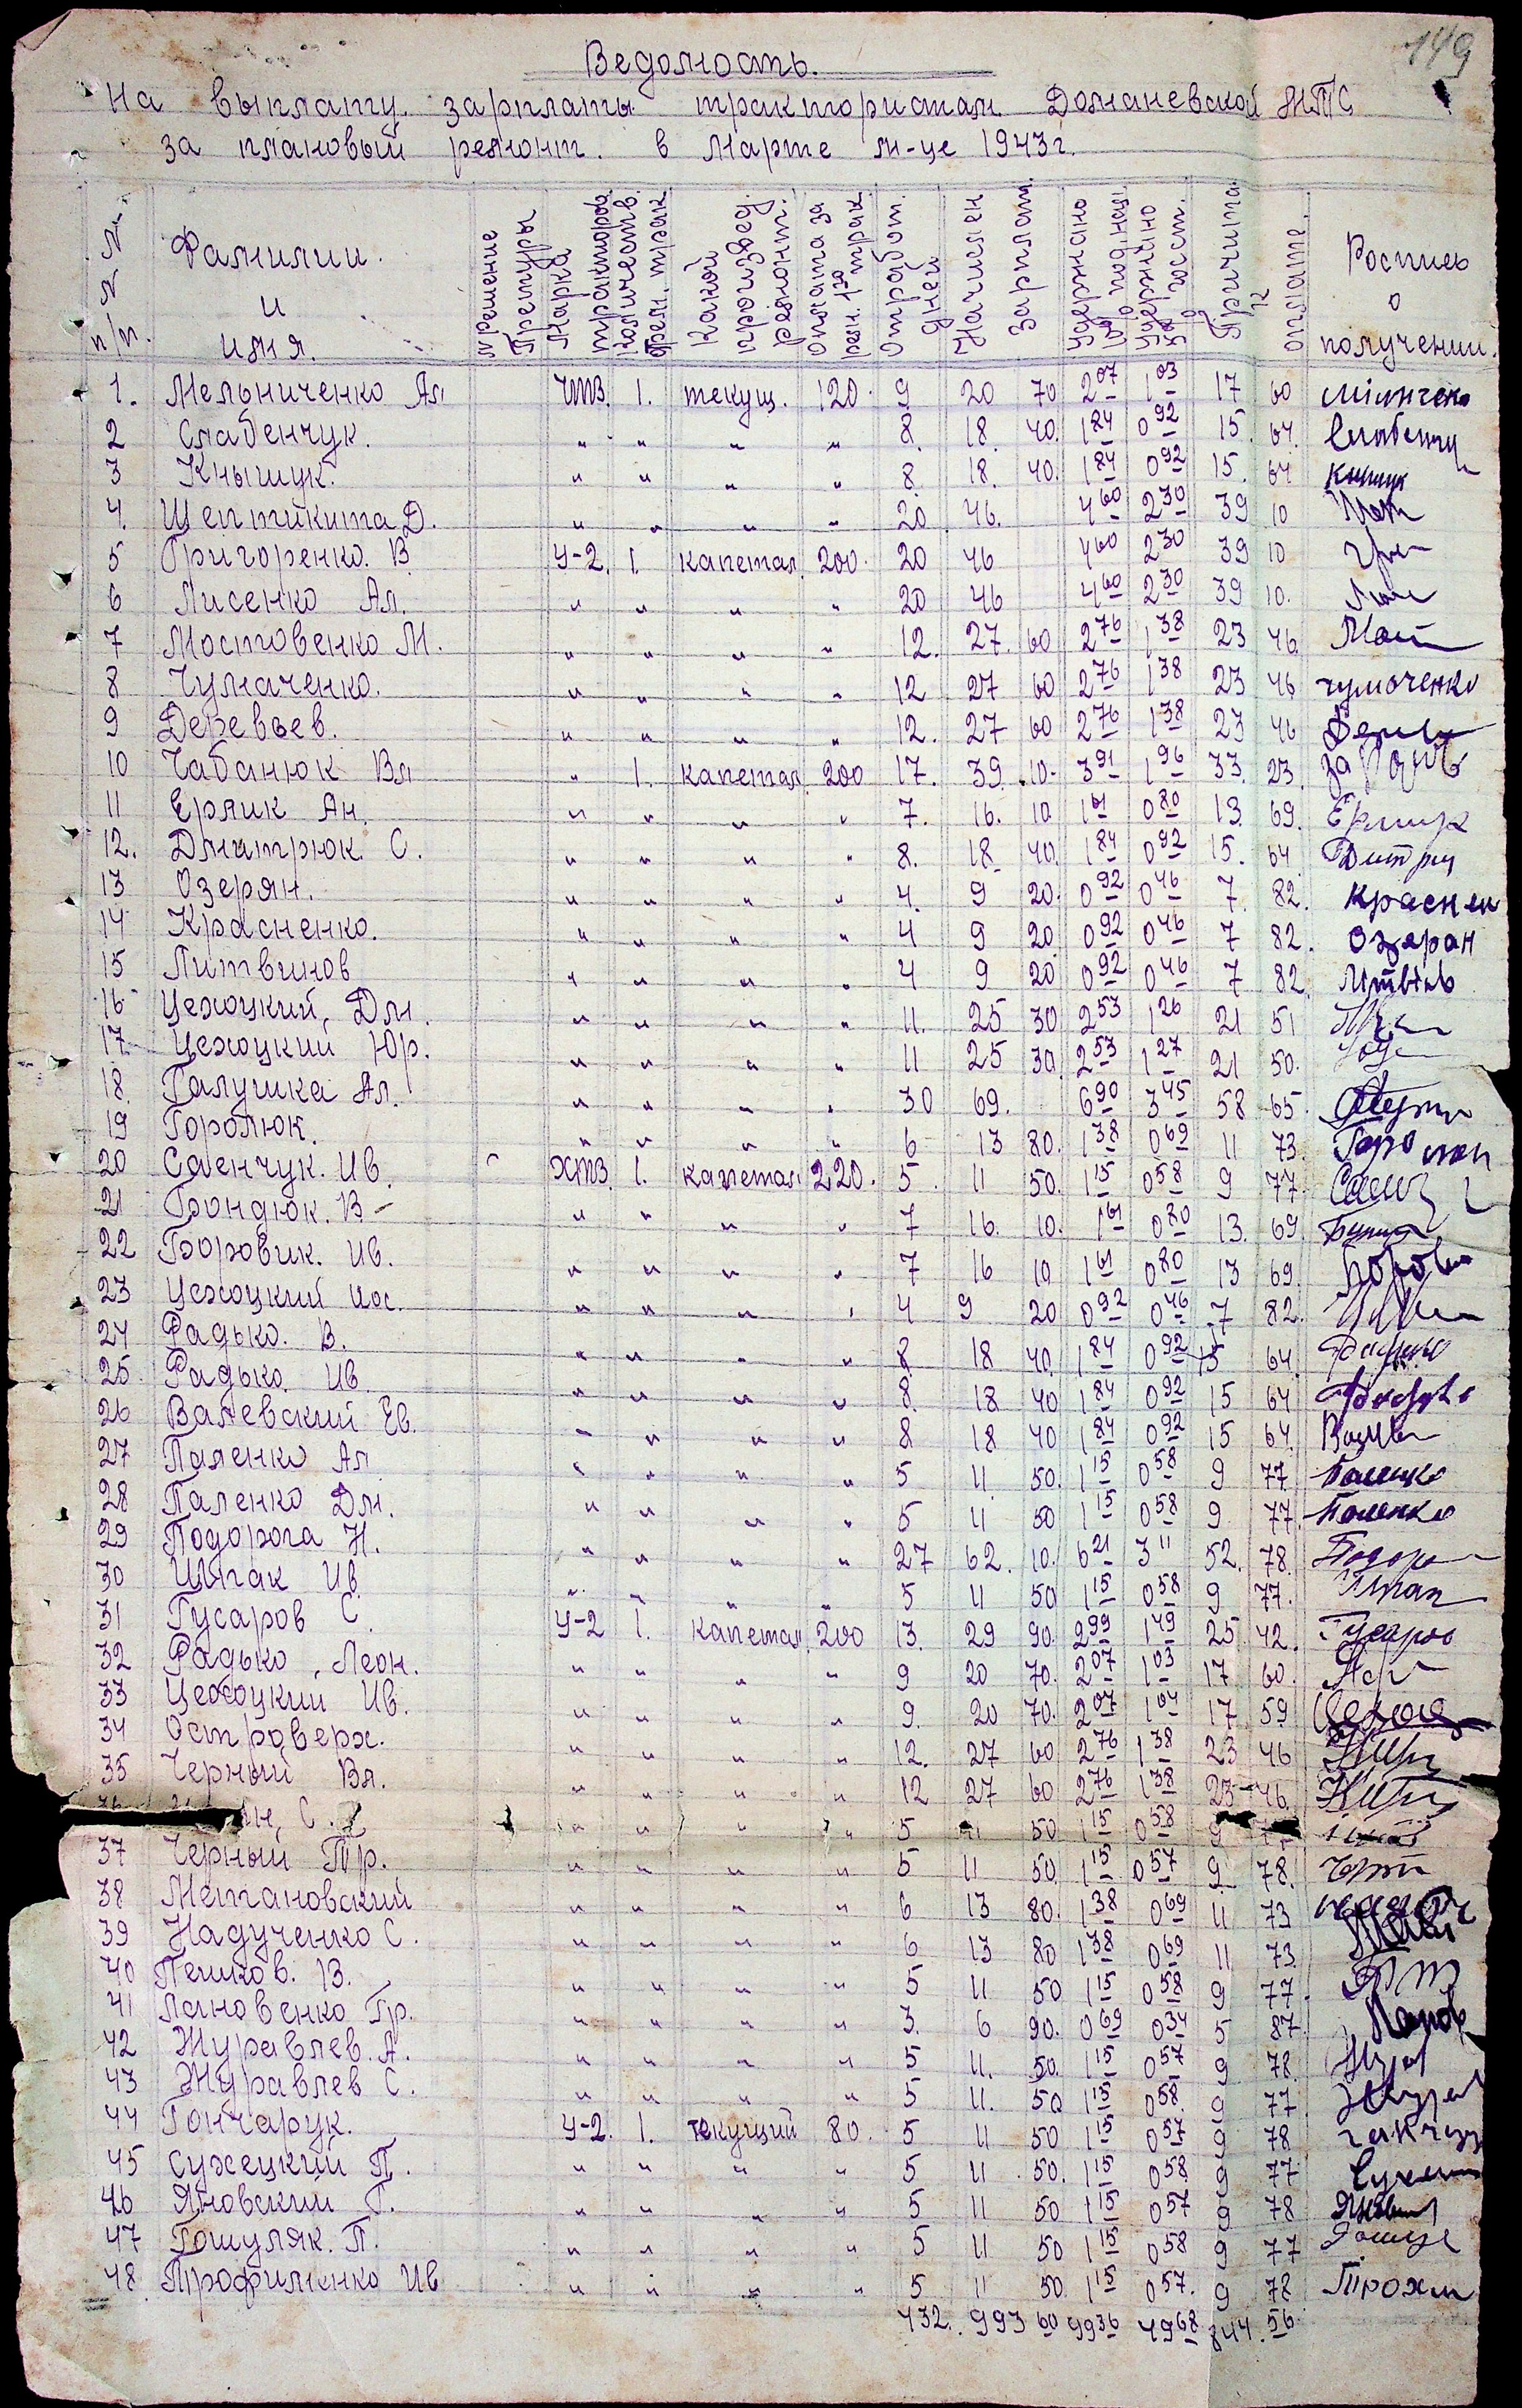 149
Ведомость.
На выплату зарплаты трактористам Доманевской МТС
за плановый ремонт. в Марте м-це 1943 г.
№ № п/п. Фамилии и имя. Марка трактора количеств. рем. трак. какой произвед. ремонт. оплата за рем. 1го трак. отработ. дней Начислен зарплат. Удержано Причита к оплате. Роспись о получении.
1. Мельниченко Ал ЧТЗ. 1. текущ. 120. 9 20 70 2 07 1 03 17 60
2 Слабенчук. " " " " 8. 18. 40. 1 84 0 92 15. 64. Слабенчу
3 Кнышук. " " " " 8. 18. 40. 1 84 0 92 15. 64 Кнышук
4. Шептикита Д. " " " " 20 46. 4 60 2 30 39 10
5 Григоренко. В У-2. 1. капетал. 200. 20 46 4 60 2 30 39 10
6 Лисенко Ал. " " " " 20 46 4 60 2 30 39 10.
7 Мостовенко М. " " " " 12. 27. 60 2 76 1 38 23 46.
8 Чумаченко. " " " " 12 27 60 2 76 1 38 23 46 чумоченко
9 Деревьев. " " " " 12. 27 60 2 76 1 38 23 46
10 Чабанюк Вл " 1. капетал. 200 17. 39. 10. 3 91 1 96 33. 23.
11 Ермик Ан. " " " " 7. 16. 10 1 61 0 80 13. 69. Ермик
12. Дмитрюк. С. " " " " 8. 18. 40. 1 84 0 92 15. 64
13 Озерян. " " " " 4. 9 20. 0 92 0 46 7. 82. Краснен
14 Красненко. " " " " 4 9 20 0 92 0 46 7 82. Озеран
15 Литвинов " " " " 4 9 20 0 92 0 46 7 82.
16 Цехоцкий, Дм. " " " " 11. 25 30 2 53 1 26 21 51
17. Цехоцкий Юр. " " " " 11 25 30 2 53 1 27 21 50.
18. Галушка Ал. " " " " 30 69. 6 90 3 45 58 65.
19 Горолюк. " " " " 6 13 80. 1 38 0 69 11 73.
20 Саенчук. Ив. ХТЗ. 1. капетал 220. 5. 11 50. 1 15 0 58 9 77.
21 Бондюк. В " " " " 7 16. 10. 1 61 0 80 13. 69.
22 Боровик. Ив. " " " " 7 16 10 1 61 0 80 13 69.
23 Цехоцкий Иос. " " " " 4 9 20 0 92 0 46 7 82.
24 Радько. В. " " " " 8 18 40 1 84 0 92 15 64
25 Радько. Ив " " " " 8. 18 40 1 84 0 92 15 64
26 Валевский Ев. " " " " 8 18 40 1 84 0 92 15 64.
27 Паленко Ал " " " " 5 11 50. 1 15 0 58 9 77
28 Паленко Дм. " " " " 5 11 50 1 15 0 58 9. 77. Паленко
29 Подорога Н. " " " " 27 62. 10. 6 21 3 11 52. 78.
30 Шпак Ив. " " " " 5 11 50 1 15 0 58 9 77. Шпак
31 Гусаров С. У-2 1. Капетал. 200 13. 29 90. 2 99 1 49 25. 42. Гусаров
32 Радько, Леон. " " " " 9 20 70. 2 07 1 03 17 60.
33 Цехоцкий Ив. " " " " 9. 20 70. 2 07 1 04 17 59
34 Островерх. " " " " 12. 27 60 2 76 1 38 23 46
35 Черный Вл. " " " " 12 27 60 2 76 1 38 23 46
С. " " " " 5 50 1 15 0 58 9
37 Черный Тр. " " " " 5 11 50. 1 15 0 57 9 78.
38 Метановский " " " " 6 13 80. 1 38 0 69 11 73
39 Надученко С. " " " " 6 13 80 1 38 0 69 11 73.
40 Пешков. В. " " " " 5 11 50 1 15 0 58 9 77.
41 Лановенко Гр. " " " " 3. 6 90. 0 69 0 34 5 87.
42 Журавлев. А. " " " " 5 11. 50. 1 15 0 57 9 78.
43 Журавлев С. " " " " 5 11. 50 1 15 0 58. 9 77.
44 Гончарук. У-2. 1. текущий 80. 5 11 50 1 15 0 57 9 78
45 Сужецкий П. " " " " 5 11 50. 1 15 0 58 9 77
46 Яновский Г. " " " " 5 11 50 1 15 0 57 9 78
47 Гошуляк. П. " " " " 5 11 50 1 15 0 58 9 77
48. Трофименко Ив " " " " 5 11 50. 1 15 0 57. 9 78
432. 993 60 99 36 49 68 844. 56.